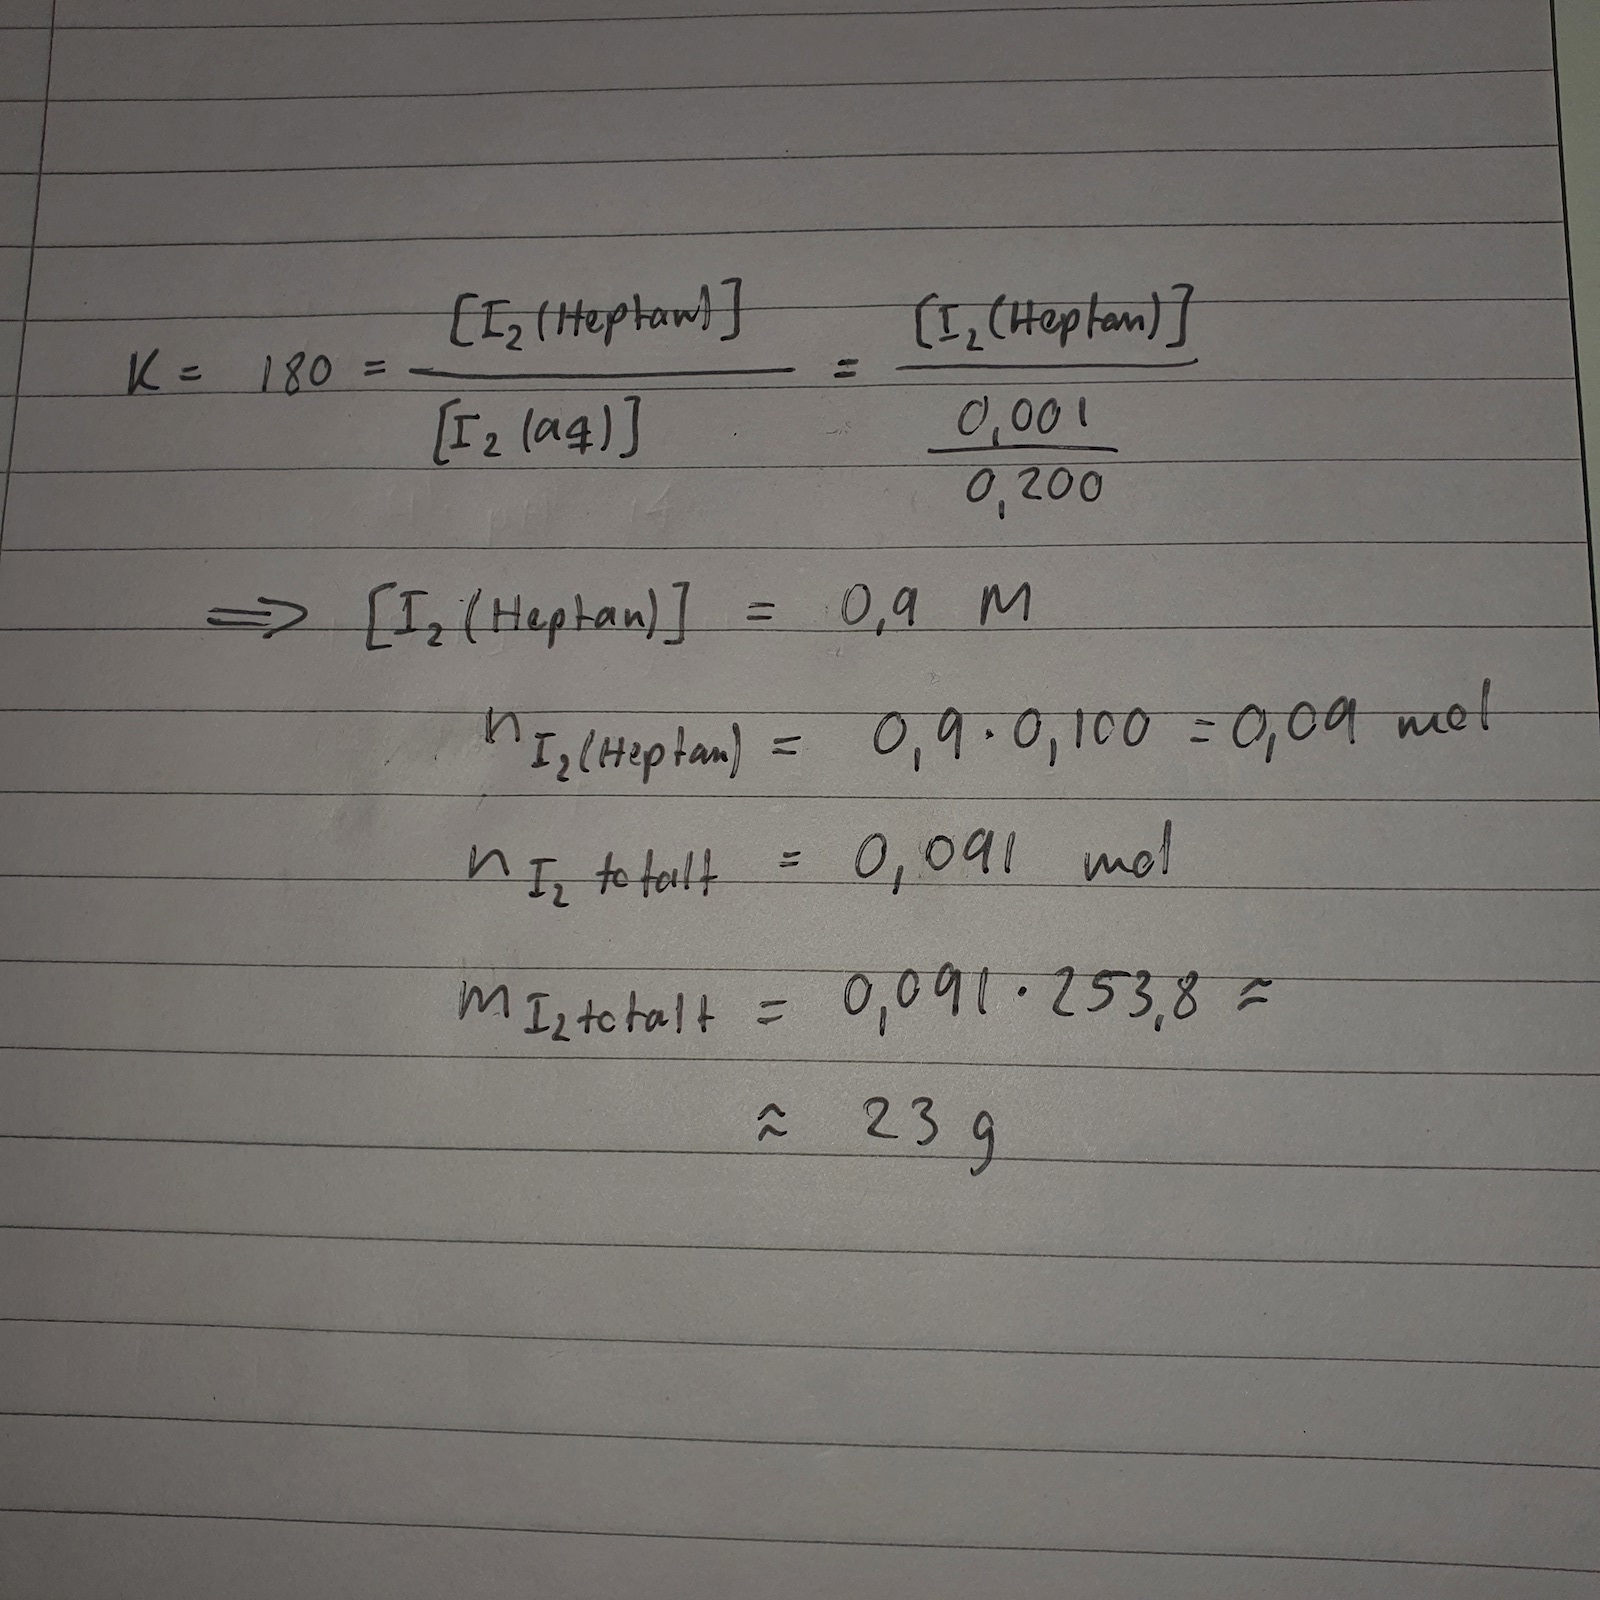 K = 180 = [I₂(Heptan)] / [I₂(aq)] = [I₂(Heptan)] / (0,001 / 0,200)
⇒ [I₂(Heptan)] = 0,9 M
n I₂(Heptan) = 0,9 · 0,100 = 0,09 mol
n I₂ totalt = 0,091 mol
m I₂ totalt = 0,091 · 253,8 ≈
≈ 23 g